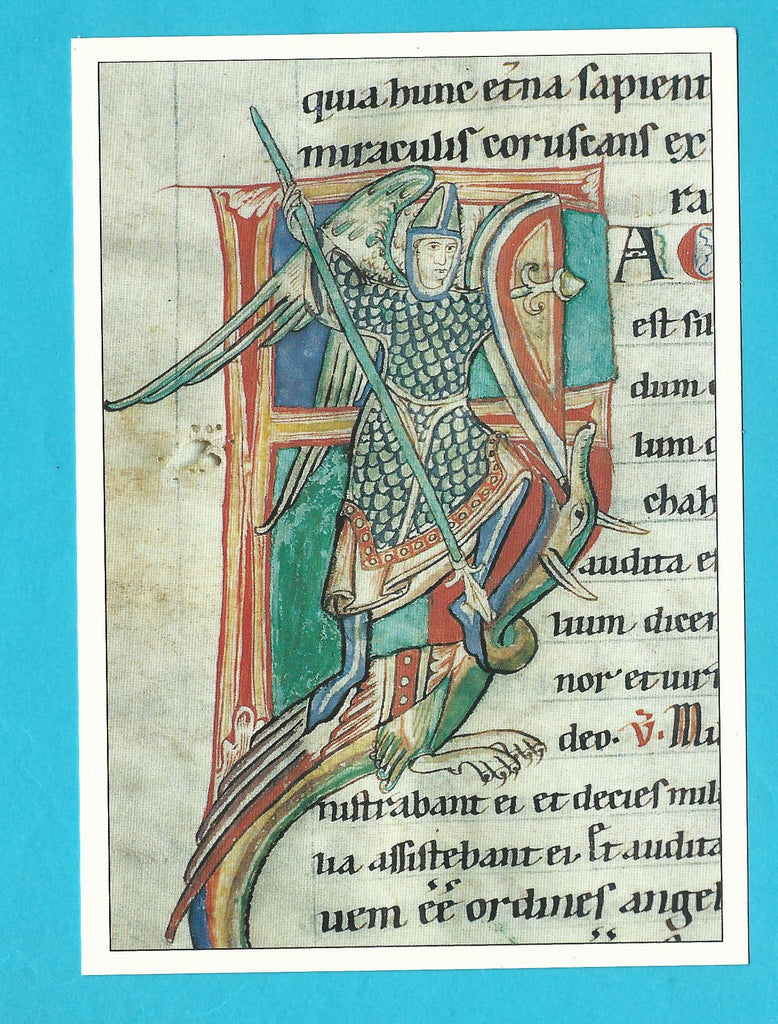 quia hunc et̄na sapient
miraculis coruscans ex
ra
A C
est fil
dum
lum
chah
audita et
luum dicen
nor et uiri
deo. v̄. Mi
nistrabant ei et decies mil
lia assistebant ei. Et audita
uem ēē ordines angel